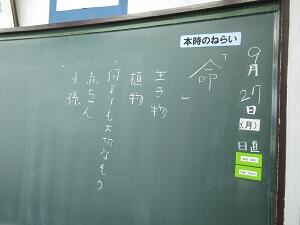 本時のねらい
9月27日(月)
日直
「命」
・生き物
・植物
・何よりも大切なもの
・赤ちゃん
・子様